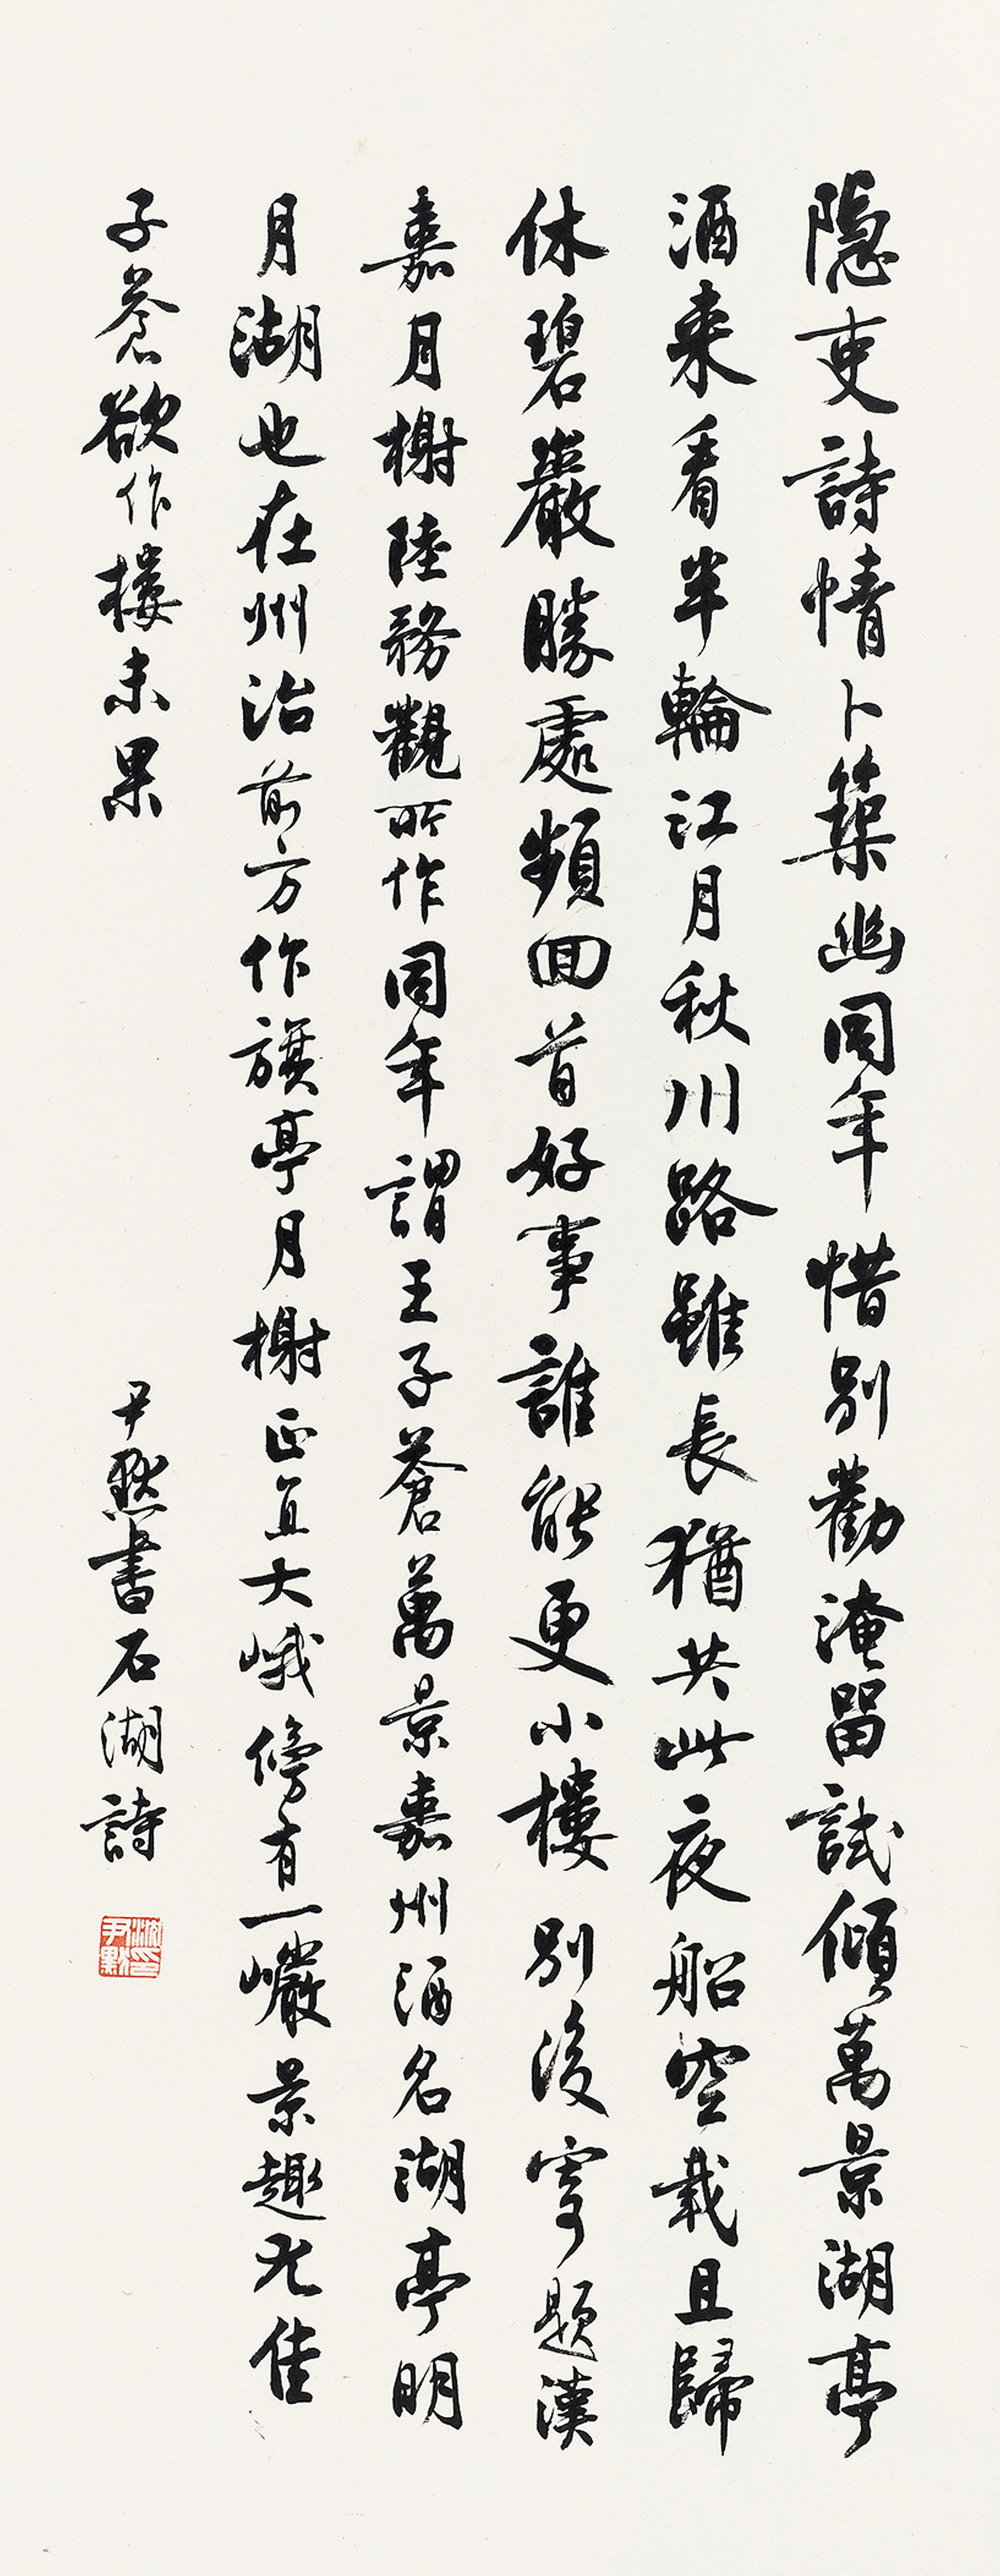 隐吏詩情卜築幽同年惜別勸淹留試傾萬景湖亭
酒來看半輪江月秋川路雖長猶共此夜船空載且歸
休碧巖勝處頻回首好事誰能更小樓 別後寄題漢
嘉月榭陸務觀所作同年謂王子蒼萬景嘉州酒名湖亭明
月湖也在州治前方作旗亭月榭正直大峨傍有一巖景趣尤佳
子蒼欲作樓未果
尹默書石湖詩
沈尹默印